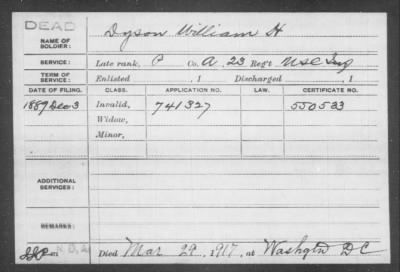 DEAD
NAME OF SOLDIER: Dyson William H
SERVICE: Late rank, P Co. A, 23 Reg't USC Inf
TERM OF SERVICE: Enlisted , 1 Discharged , 1
DATE OF FILING. CLASS. APPLICATION NO. LAW. CERTIFICATE NO.
1889 Dec 3 Invalid, 741327 550533
Widow,
Minor,
ADDITIONAL SERVICES:
REMARKS:
Died Mar 29, 1917, at Washgtn DC